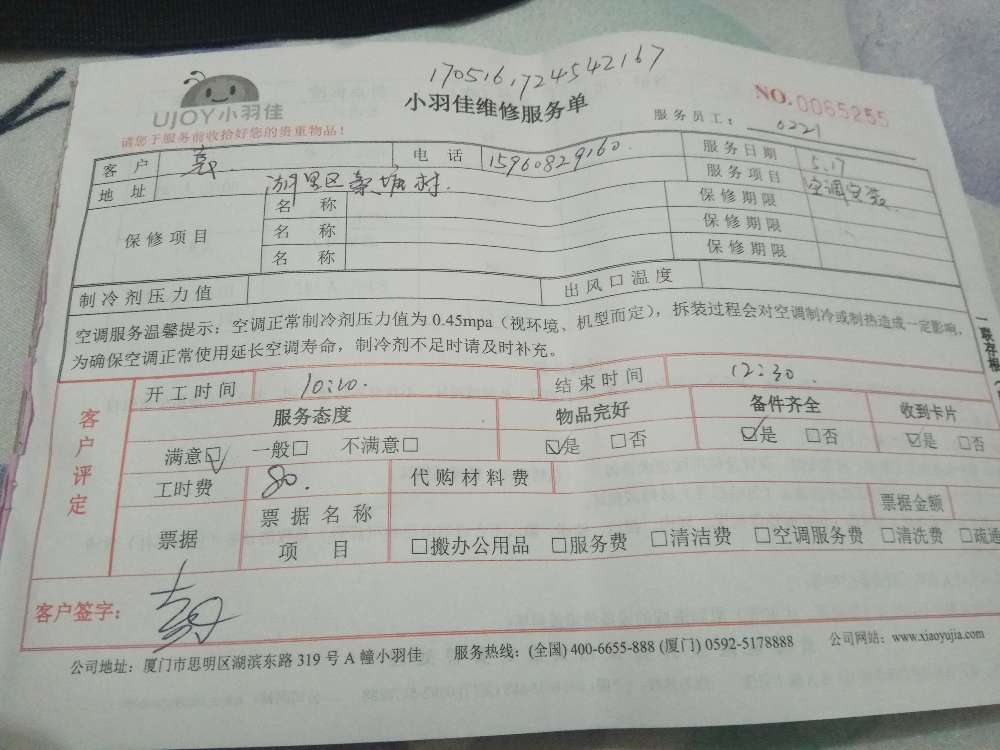 170516172454 2167
UJOY小羽佳
小羽佳维修服务单
NO.0065255
请您于服务前收拾好您的贵重物品!
服务员工: 0221
客户 电话 15960829160. 服务日期 5.17
地址 湖里区 村. 服务项目 空调安装
保修项目 名称 保修期限
名称 保修期限
名称 保修期限
制冷剂压力值 出风口温度
空调服务温馨提示:空调正常制冷剂压力值为 0.45mpa(视环境、机型而定),拆装过程会对空调制冷或制热造成一定影响,
为确保空调正常使用延长空调寿命,制冷剂不足时请及时补充。
一联存根
客户评定
开工时间 10:10. 结束时间 12:30.
服务态度 物品完好 备件齐全 收到卡片
满意☑ 一般□ 不满意□ ☑是 □否 ☑是 □否 ☑是 □否
工时费 80. 代购材料费
票据 票据名称 票据金额
项目 □搬办公用品 □服务费 □清洁费 □空调服务费 □清洗费 □疏通
客户签字:
公司地址:厦门市思明区湖滨东路 319 号 A 幢小羽佳 服务热线:(全国) 400-6655-888 (厦门) 0592-5178888 公司网站:www.xiaoyujia.com